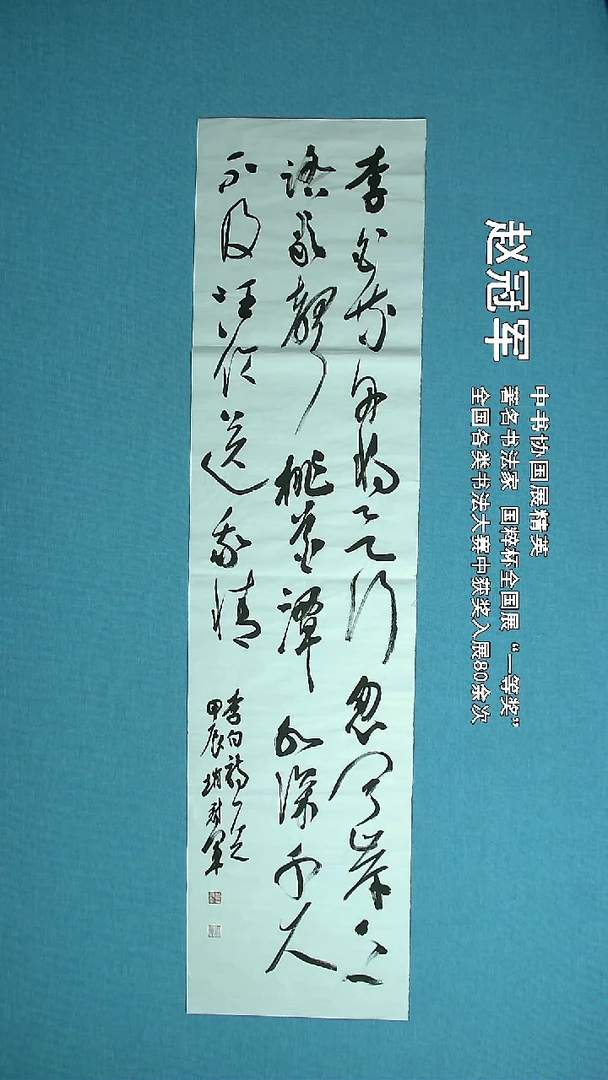 李白乘舟将欲行忽闻岸上
踏歌聲桃花潭水深千尺
不及汪伦送我情
李白詩一首
甲辰趙冠军
赵冠军
中书协国展精英
著名书法家 国粹杯全国展“一等奖”
全国各类书法大赛中获奖入展80余次